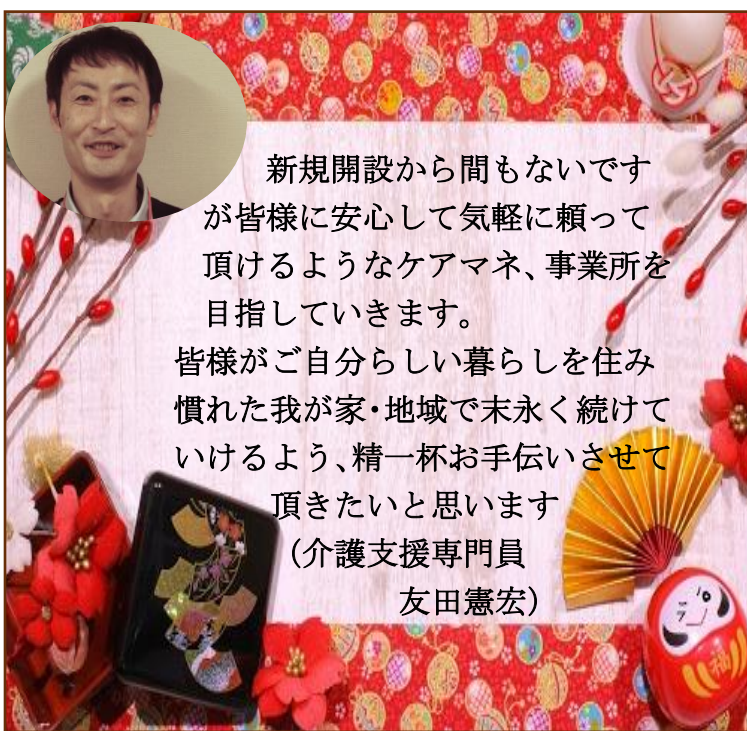 新規開設から間もないです
が皆様に安心して気軽に頼って
頂けるようなケアマネ、事業所を
目指していきます。
皆様がご自分らしい暮らしを住み
慣れた我が家・地域で末永く続けて
いけるよう、精一杯お手伝いさせて
頂きたいと思います
（介護支援専門員
友田憲宏）
福